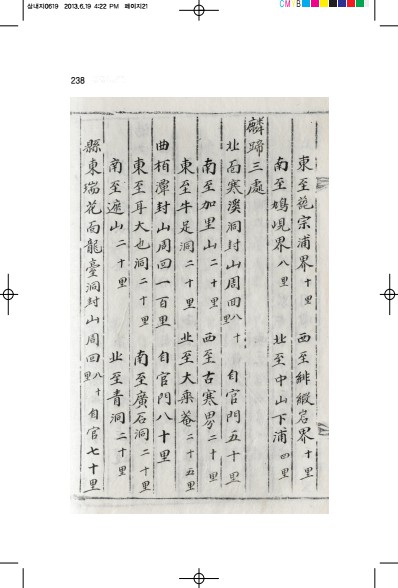 삼내지0619 2013.6.19 4:22 PM 페이지21
CM
238
東至範宗浦界十里 西至緋緞岩界十里
南至鳩峴界八里 北至中山下浦四里
麟蹄三處
北面寒溪洞封山周回八十里 自官門五十里
南至加里山二十里 西至古寒界二十里
東至牛足洞二十里 北至大乘菴二十五里
曲栢潭封山周回一百里 自官門八十里
東至耳大也洞二十里 南至廣石洞二十里
南至遮山二十里 北至青洞二十里
縣東瑞花面龍臺洞封山周回八十里 自官七十里